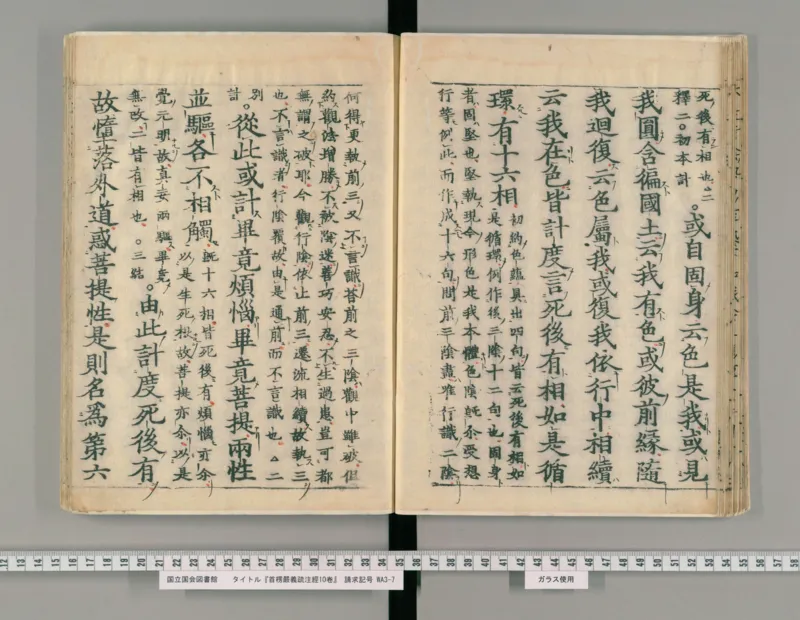 死後有相也△二
釋二。初本計
。或自固身云色是我或見
我圓含徧國土云我有色或彼前緣隨
我迴復云色屬我或復我依行中相續
云我在色皆計度言死後有相如是循
環有十六相
初約色蘊具出四句皆云死後有相如
是循環例作後三陰十二句也固身
者固堅也堅執現今形色是我本體色陰既尒受想
行等例此而作成十六句問前三陰盡唯行識二陰
何得更執前三又不言識荅前之三陰觀中雖破但
約觀法增勝不執陰迷善巧安忍不生過患豈可都
無謂之破耶今觀行陰依止前三遷流相續故執三
也不言識者行陰覆故由是通前而不言識也△二
別
計
。從此或計畢竟煩惱畢竟菩提兩性
並驅各不相觸
既十六相皆死後有煩惱亦尒
以是生死根故菩提亦尒以是
覺元明故真妄兩驅畢竟
無改二皆有相也。三結
。由此計度死後有
故墮落外道惑菩提性是則名為第六
国立国会図書館 タイトル『首楞嚴義疏注經10巻』 請求記号 WA3-7
ガラス使用